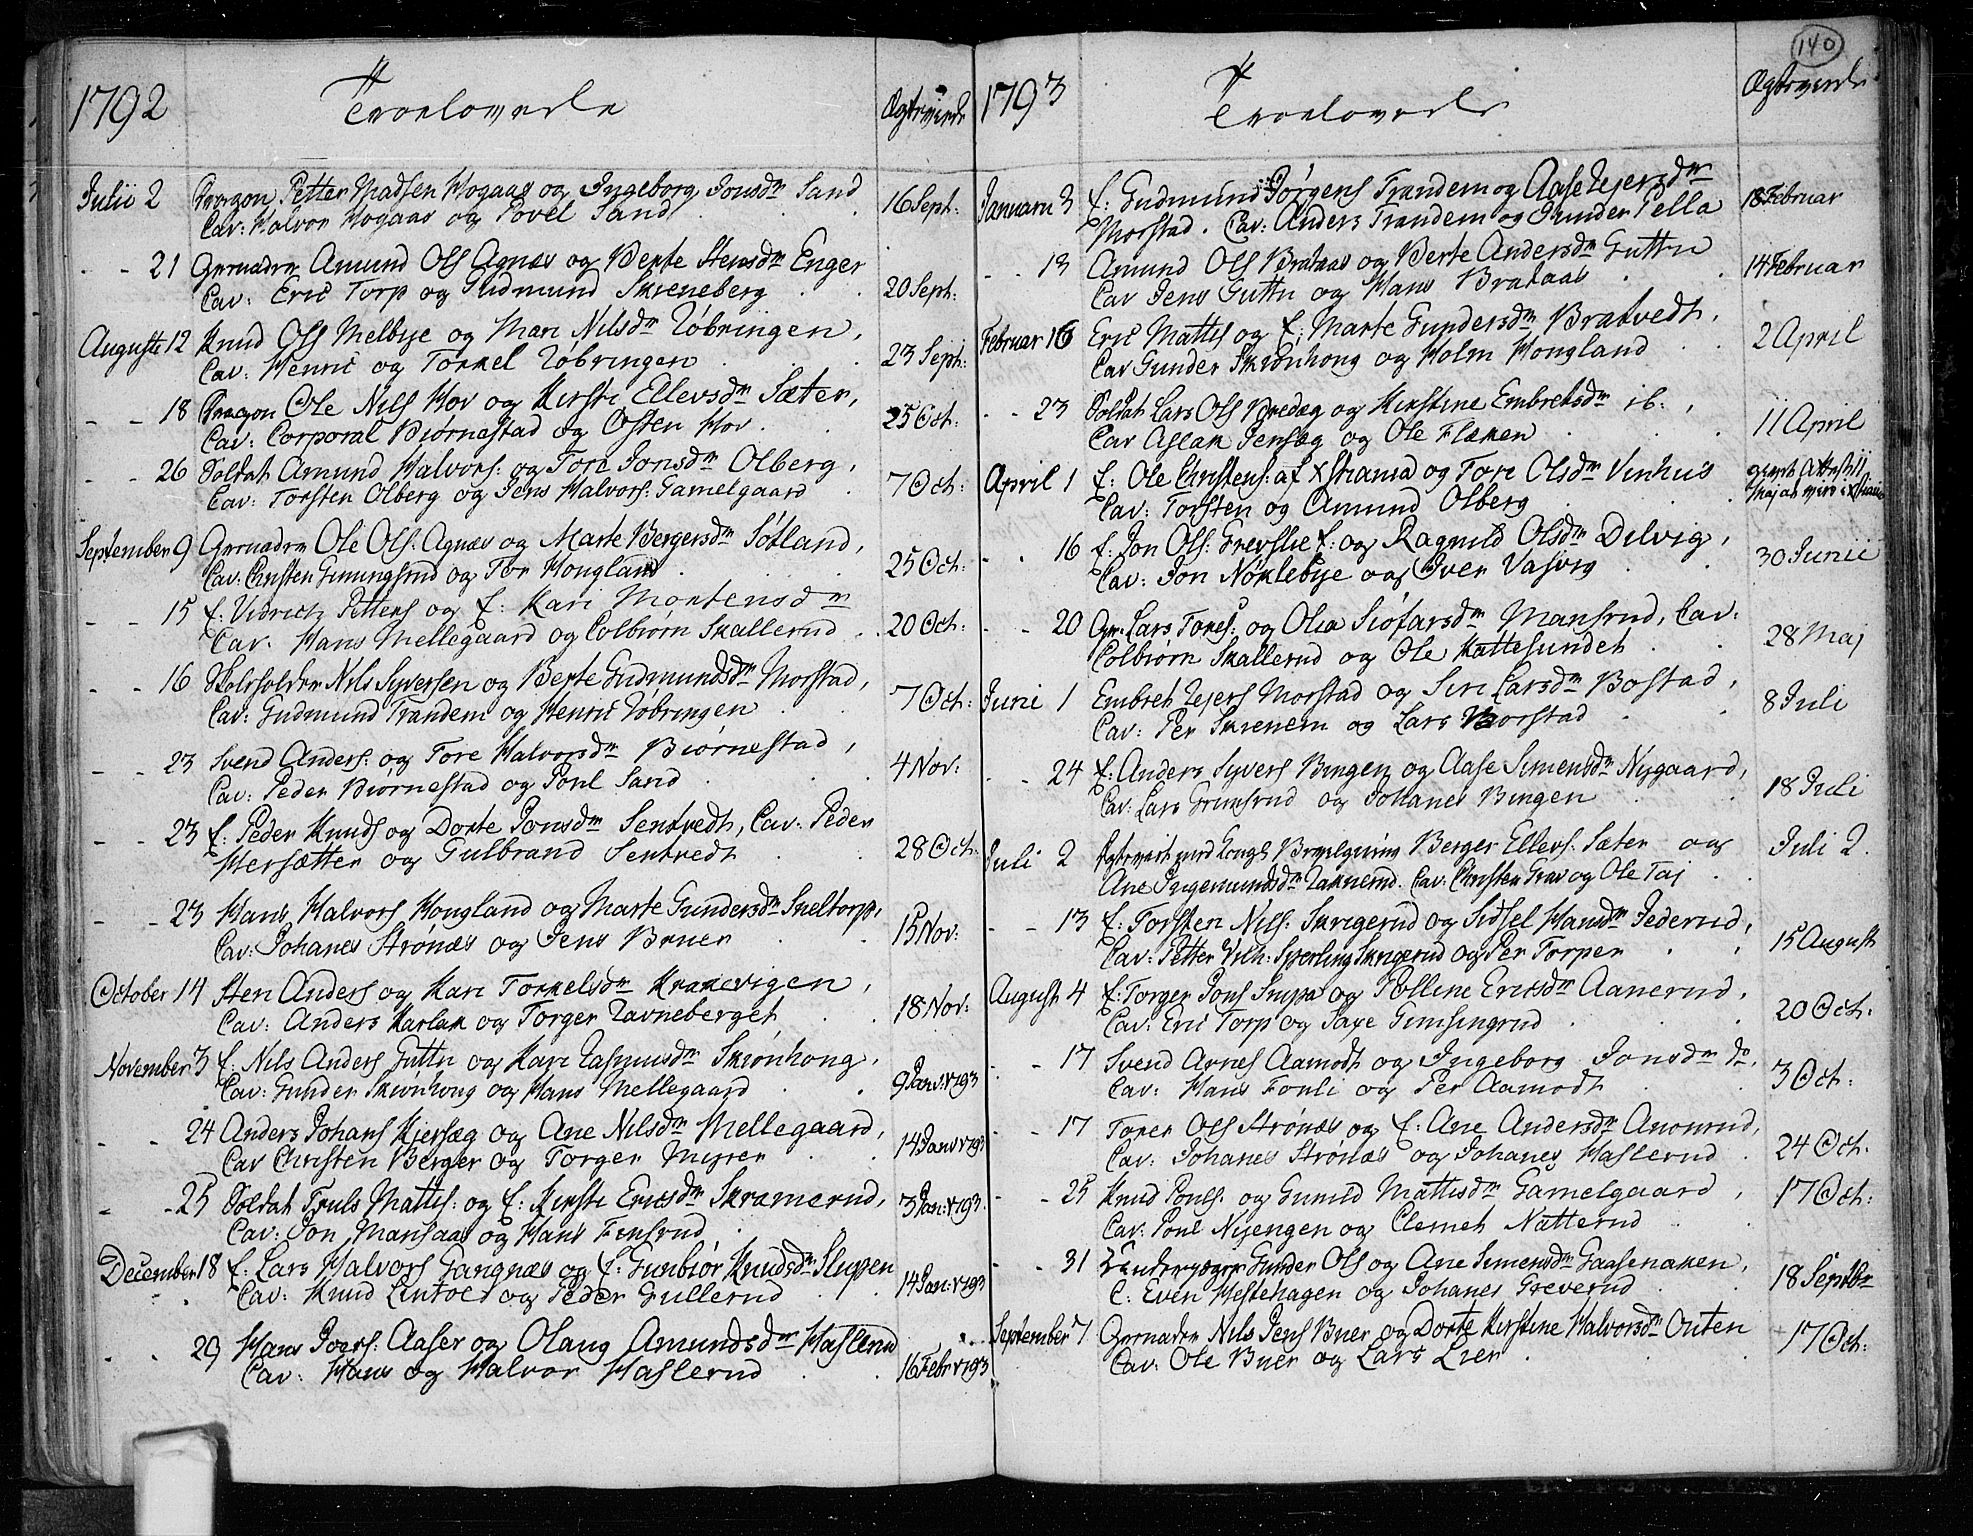 1792
Troelovede
Ægteviede
Julii 2 Dragon Petter Madsen Hogaas og Ingeborg Jonsdr Sand
Cav: Halvor Hogaas og Povel Sand
16 Sept:
- - 21 Grenadeer Amund Ols Agnæs og Berte Stensdr Enger
Cav: Eric Torp og Gudmund Skreneberg
20 Sept:
Augusti 12 Knud Ols Melbye og Mari Nilsdr Røbringen,
Cav: Henric og Torkel Røbringen
23 Sept:
- - 18 Dragon Ole Nils Hov og Kirsti Ellevsdr Sæter,
Cav: Corporal Biørnestad og Osten Hov
25 Oct:
- - 26 Soldat Amund Halvors: og Tore Jonsdr Olberg,
Cav: Torsten Olberg og Jens Halvors: Gamelgaard
7 Oct:
September 9 Grenadeer Ole Ols: Agnæs og Marte Bergersdr Søtland,
Cav: Christen Gimingsrud og Tor Hougland
25 Oct:
- - 15 f: Vidrich Petters og f: Kari Mortensdr
Cav: Hans Mellegaard og Colbiørn Skallerud
20 Oct:
- - 16 Skoleholder Nils Syversen og Berte Gudmundsdr Morstad,
Cav: Gudmund Trandem og Henric Røbringen
7 Oct:
- - 23 Svend Anders: og Tore Halvorsdr Biørnestad,
Cav: Peder Biørnestad og Poul Sand
4 Nov:
- - 23 f: Peder Knuds og Dorte Jonsdr Sentvedt, Cav: Peder
Hersætter og Gulbrand Sentvedt
28 Oct:
- - 23 Hans Halvors Hougland og Marte Gundersdr Sneltorp,
Cav: Johanes Strønæs og Jens Bruer
15 Nov:
October 14 Sten Anders og Kari Torkelsdr Krakevigen,
Cav: Anders Karlak og Torger Ravneberget
18 Nov:
November 3 f: Nils Anders Guttu og Kari Rasmusdr Skiønhoug,
Cav: Gunder Skiønhoug og Hans Mellegaard
9 Jan: 1793
- - 24 Anders Johans Kjersæg og Ane Nilsdr Mellegaard,
Cav Christen Berger og Torger Myrer
14 Jan: 1793
- - 25 Soldat Truls Mattis: og f: Kirsti Ericsdr Skramerud,
Cav: Jon Mansaas og Hans Finsrud
3 Jan: 1793
December 18 f: Lars Halvors Gangnæs og f: Gunbiør Knudsdr Slupen
Cav: Knud Lintoe og Peder Gullerud
14 Jan: 1793
- - 29 Hans Joers: Aaser og Olaug Amundsdr Haslerud
Cav: Hans og Halvor Haslerud
16 Febr 1793
140
1793
Troelovede
Ægteviede
Januarii 3 f: Gudmund Jørgens Trandem og Aase Rejersdr
Morstad. Cav: Anders Trandem og Gunder Pella
18 Februar
- - 13 Amund Ols Brataas og Berte Andersdr Guttu
Cav Jens Guttu og Hans Brataas
14 Februar
Februar 16 Eric Mattis og f: Marte Gundersdr Bratvedt,
Cav Gunder Skiønhoug og Holm Hougland
2 April
- - 23 Soldat Lars Ols Bredæg og Kirstine Embretsdr ib:,
Cav Aslak Jensæg og Ole Flaken
11 April
April 1 f: Ole Christens: af Xstiania og Tore Olsdr Vinhus
Cav: Torsten og Amund Olberg
- - 16 f: Jon Ols: Grevslie f: og Ragnild Olsdr Delvig,
Cav: Jon Nøklebye og Iver Vasvig
30 Junii
- - 20 Gr: Lars Tores: og Olia Siofarsdr Mansrud, Cav:
Colbiørn Skallerud og Ole Kattesundet
28 Maj
Juni 1 Embret Rejers Morstad og Siri Larsdr Bostad,
Cav: Per Skrenem og Lars Morstad
8 Juli
- - 24 f: Anders Syvers Bingen og Aase Simensdr Nygaard,
Cav: Lars Grinsrud og Johanes Bingen
18 Juli
Juli 2 Ægteviet med Kongl Bevilgning Berger Ellevs: Sæter og
Ane Ingemundsdr Raknerud. Cav: Christen Grav og Ole Taj
Juli 2
- - 13 f: Torsten Nils: Skrigerud og Sidsel Hansdr Jederud,
Cav: Petter Vilh: Sperling Skrigerud og Per Torper
15 August
August 4 f: Torger Jons Snipa og Polline Ericsdr Aanerud,
Cav: Eric Torp og Paye Gimsingrud
20 Oct:
- - 17 Svend Arnes Aamodt og Ingeborg Jonsdr do,
Cav: Hans Fouli og Per Aamodt
3 Oct:
- - 17 Torer Ols Strønæs og f: Ane Andersdr Amonrud,
Cav: Johanes Strønæs og Johanes Haslerud
24 Oct:
- - 25 Knud Pouls: og Gunild Mattisdr Gamelgaard,
Cav: Poul Nyengen og Clemet Natterud
17 Oct:
- - 31 Landværger Gunder Ols og Ane Simensdr Gaasenaken,
C: Even Hestehagen og Johanes Greverud
18 Septbr
September 7 Grenadeer Nils Jens Buer og Dorte Kirstine Halvorsdr Outen
Cav: Ole Buer og Lars Lier
17 Oct: